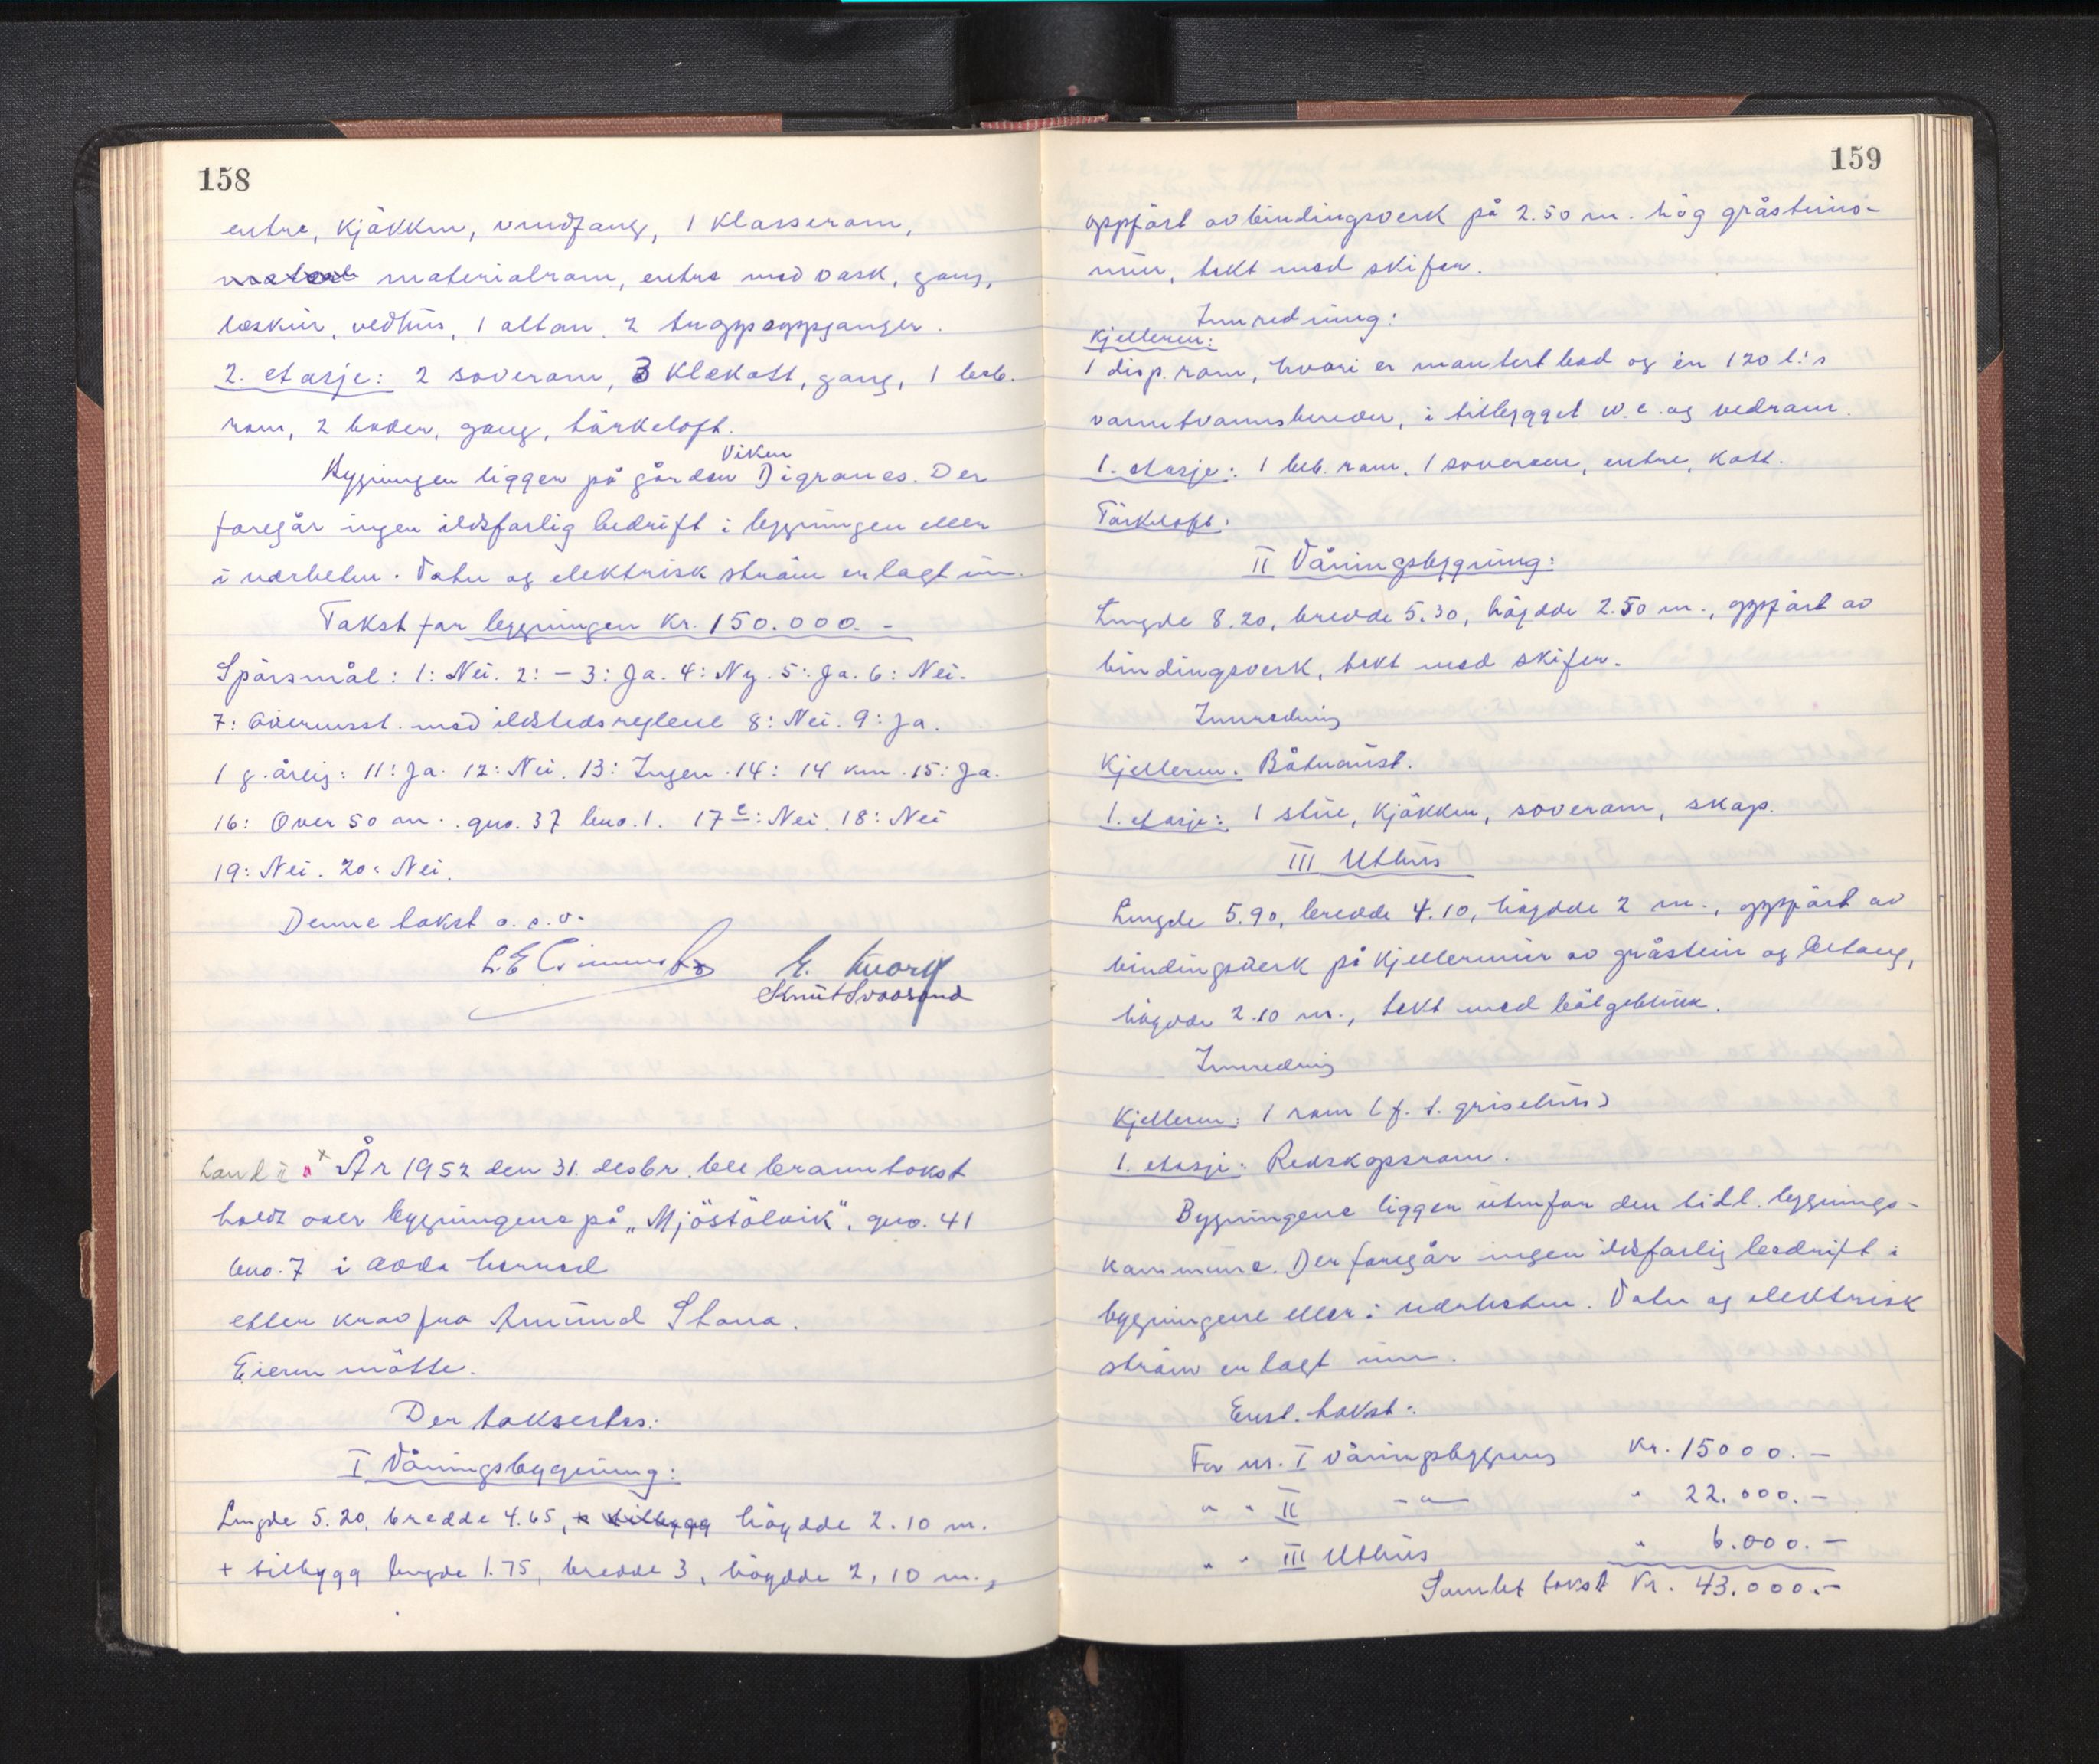 158
entre, kjøkken, vindfang, 1 klasserom,
materialrom, entre med vask, gang,
leskur, vedhus, 1 altan, 2 trappeoppganger.
2. etasje: 2 soverom, 3 klekott, gang, 1 beb.
rom, 2 boder, gang, törkeloft.
Viken
Bygningen ligger på gården Digranes. Der
foregår ingen ildsfarlig bedrift i bygningen eller
i nærheten. Vatn og elektrisk ström er lagt inn.
Takst for bygningen kr. 150.000.-
Spörsmål: 1: Nei. 2: - 3: Ja. 4: Ny. 5: Ja. 6: Nei.
7: Overensst. med ildstedsreglene 8: Nei. 9: Ja.
1 g. årlig: 11: Ja. 12: Nei. 13: Ingen. 14: 14 km. 15: Ja.
16: Over 50 m. gno. 37 bno. 1. 17 c: Nei. 18: Nei
19: Nei. 20: Nei.
Denne takst o.s.v.
Knut Svoosand
År 1952 den 31. desbr. ble branntakst
holdt over bygningene på "Mjöstölvik", gno. 41
bno. 7 i Odda herred
etter krav fra Amund Stana.
Eieren mötte.
Der takseres:
I Våningsbygning:
Lengde 5.20, bredde 4.65, + tilbygg högdde 2.10 m.
+ tilbygg lengde 1.75, bredde 3, högdde 2,10 m.,
159
oppfört av bindingsverk på 2.50 m. hög gråsteins-
mur, tekt med skifer.
Innredning:
Kjelleren:
1 disp. rom, hvori er montert bad og en 120 l.'s
varmtvannsbereder, i tilbygget w.c. og vedrom.
1. etasje: 1 beb. rom, 1 soverom, entre, kott.
Törkeloft.
II Våningsbygning:
Lengde 8.20, bredde 5.30, högdde 2.50 m., oppfört av
bindingsverk, tekt med skifer.
Innredning
Kjelleren. Båtnaust.
1. etasje: 1 stue, kjökken, soverom, skap.
III Uthus
Lengde 5.90, bredde 4.10, högdde 2 m., oppfört av
bindingsverk på kjellermur av gråstein og betong,
högdde 2.10 m., tekt med bölgeblikk.
Innredning
Kjelleren: 1 rom (f. t. grisehus)
1. etasje: Redskapsrom.
Bygningene ligger utenfor den tidl. bygnings-
kommune. Der foregår ingen ildsfarlig bedrift i
bygningene eller i nærheten. Vatn og elektrisk
ström er lagt inn.
Enst. takst:
For nr. I våningsbygning kr. 15000.-
" " II -"- " 22.000.-
" " III Uthus " 6.000.-
Samlet takst kr. 43.000.-